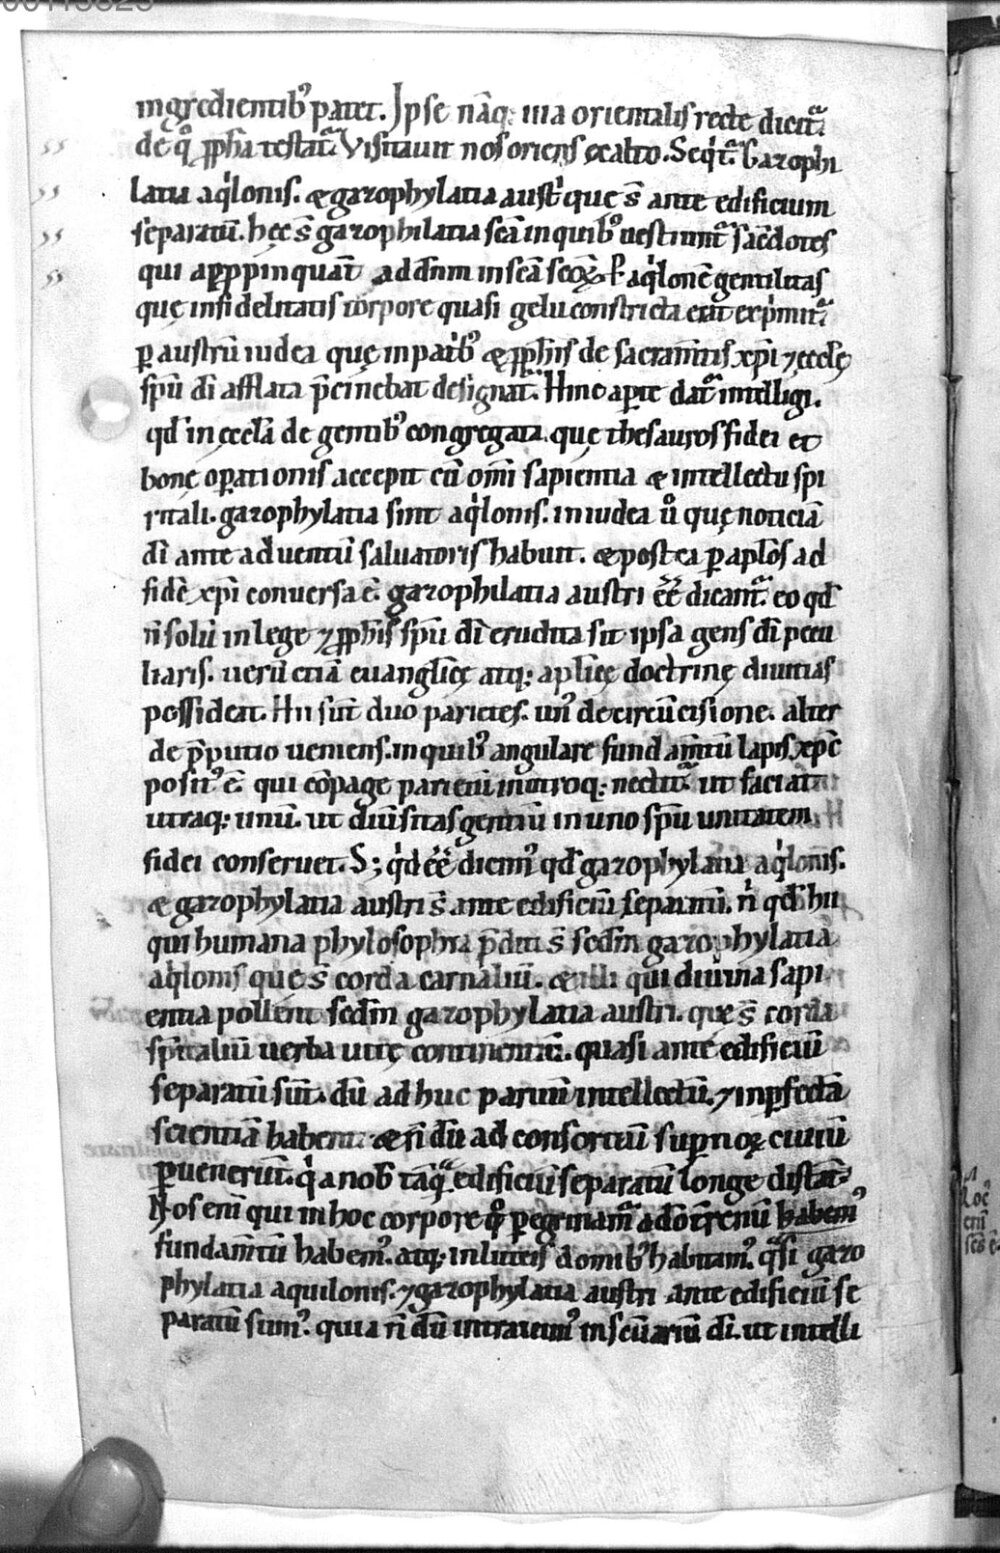 ingredientib᷒ patet. Ipse nāq; uia orientalis recte dicit᷑
de qͦ ꝓph̄a testat᷑. Visitauit nos oriens ex alto. Seqͥt᷑. Gazophi
latia aqͥlonis. & gazophylatia austͥ que s̄ ante edificium
separatū. hęc s̄ gazophilatia scā in quib᷒ uestiunt᷑ sac̄dotes
qui apꝓpinquāt ad dn̄m in scā scōꝝ. P aqͥlonē gentilitas
quę infidelitatis torpore quasi gelu constricta erat exp̄mit᷑.
ꝑ austrū iudea quę in patͥb᷒ & ꝓph̄is de sacram̄tis xp̄i ⁊ ęccl̄ę
spū dī afflata p̄cinebat designat᷑. Hinc aꝑte dat᷑ intelligi.
qd̄ in ęccl̄a de gentib᷒ congregata. quę thesauros fidei et
bonę oꝑationis accepit cū om̄i sapientia & intellectu spi
ritali. gazophylatia sint aqͥlonis. in iudea ů quę noticiā
dī ante aduentū saluatoris habuit. & postea ꝑ apl̄os ad
fidē xp̄i conuersa ē. gazophilatia austri ēē dicant᷑. eo qd̄
n̄ solū in lege ⁊ ꝓph̄is spū dī erudita sit ipsa gens dī pecu
liaris. uerū etiā euanglicę atq; apl̄icę doctrinę diuitias
possideat. Hii sūt duo parietes. un᷒ de circūcisione. alter
de p̄putio ueniens. in quib᷒ angulare fundam̄tū lapis xp̄c
posit᷒ ē. qui cōpage parietū in utroq; nectit᷑. ut faciat
utraq; unū. ut diūsitas gentiū in uno spū unitatem
fidei conseruet. S; qͥd ēē dicim᷒ qd̄ gazophylatia aqͥlonis.
& gazophylatia austri s̄ ante edificiū separatū. nͥ qd̄ hii
qui humana phylosophia p̄diti s̄ sedm̄ gazophylatia
aqͥlonis quę s̄ corda carnaliū. & illi qui diuina sapi
entia pollent sedm̄ gazophylatia austri. quę s̄ corda
sp̄italiū uerba uitę continentiū. quasi ante edificiū
separatū sūt. dū ad huc paruū intellectū. ⁊ inꝑfectā
scientiā habent. & n̄ dū ad consortiū suꝑnoꝝ ciuiū
ꝑuenerūt. qͥa nob̄ tāqͣ edificiū separatū longe distāt.
Nos enī qui in hoc corpore qͦ ꝑegrinam᷒ a dō terrenū habem᷒
fundam̄tū habem᷒. atq; in luteis domib᷒ habitam᷒. qͣsi gazo
phylatia aquilonis. ⁊ gazophylatia austri ante edificiū se
paratū sum᷒. quia n̄ dū intrauim᷒ in sc̄uariū dī. ut intelli